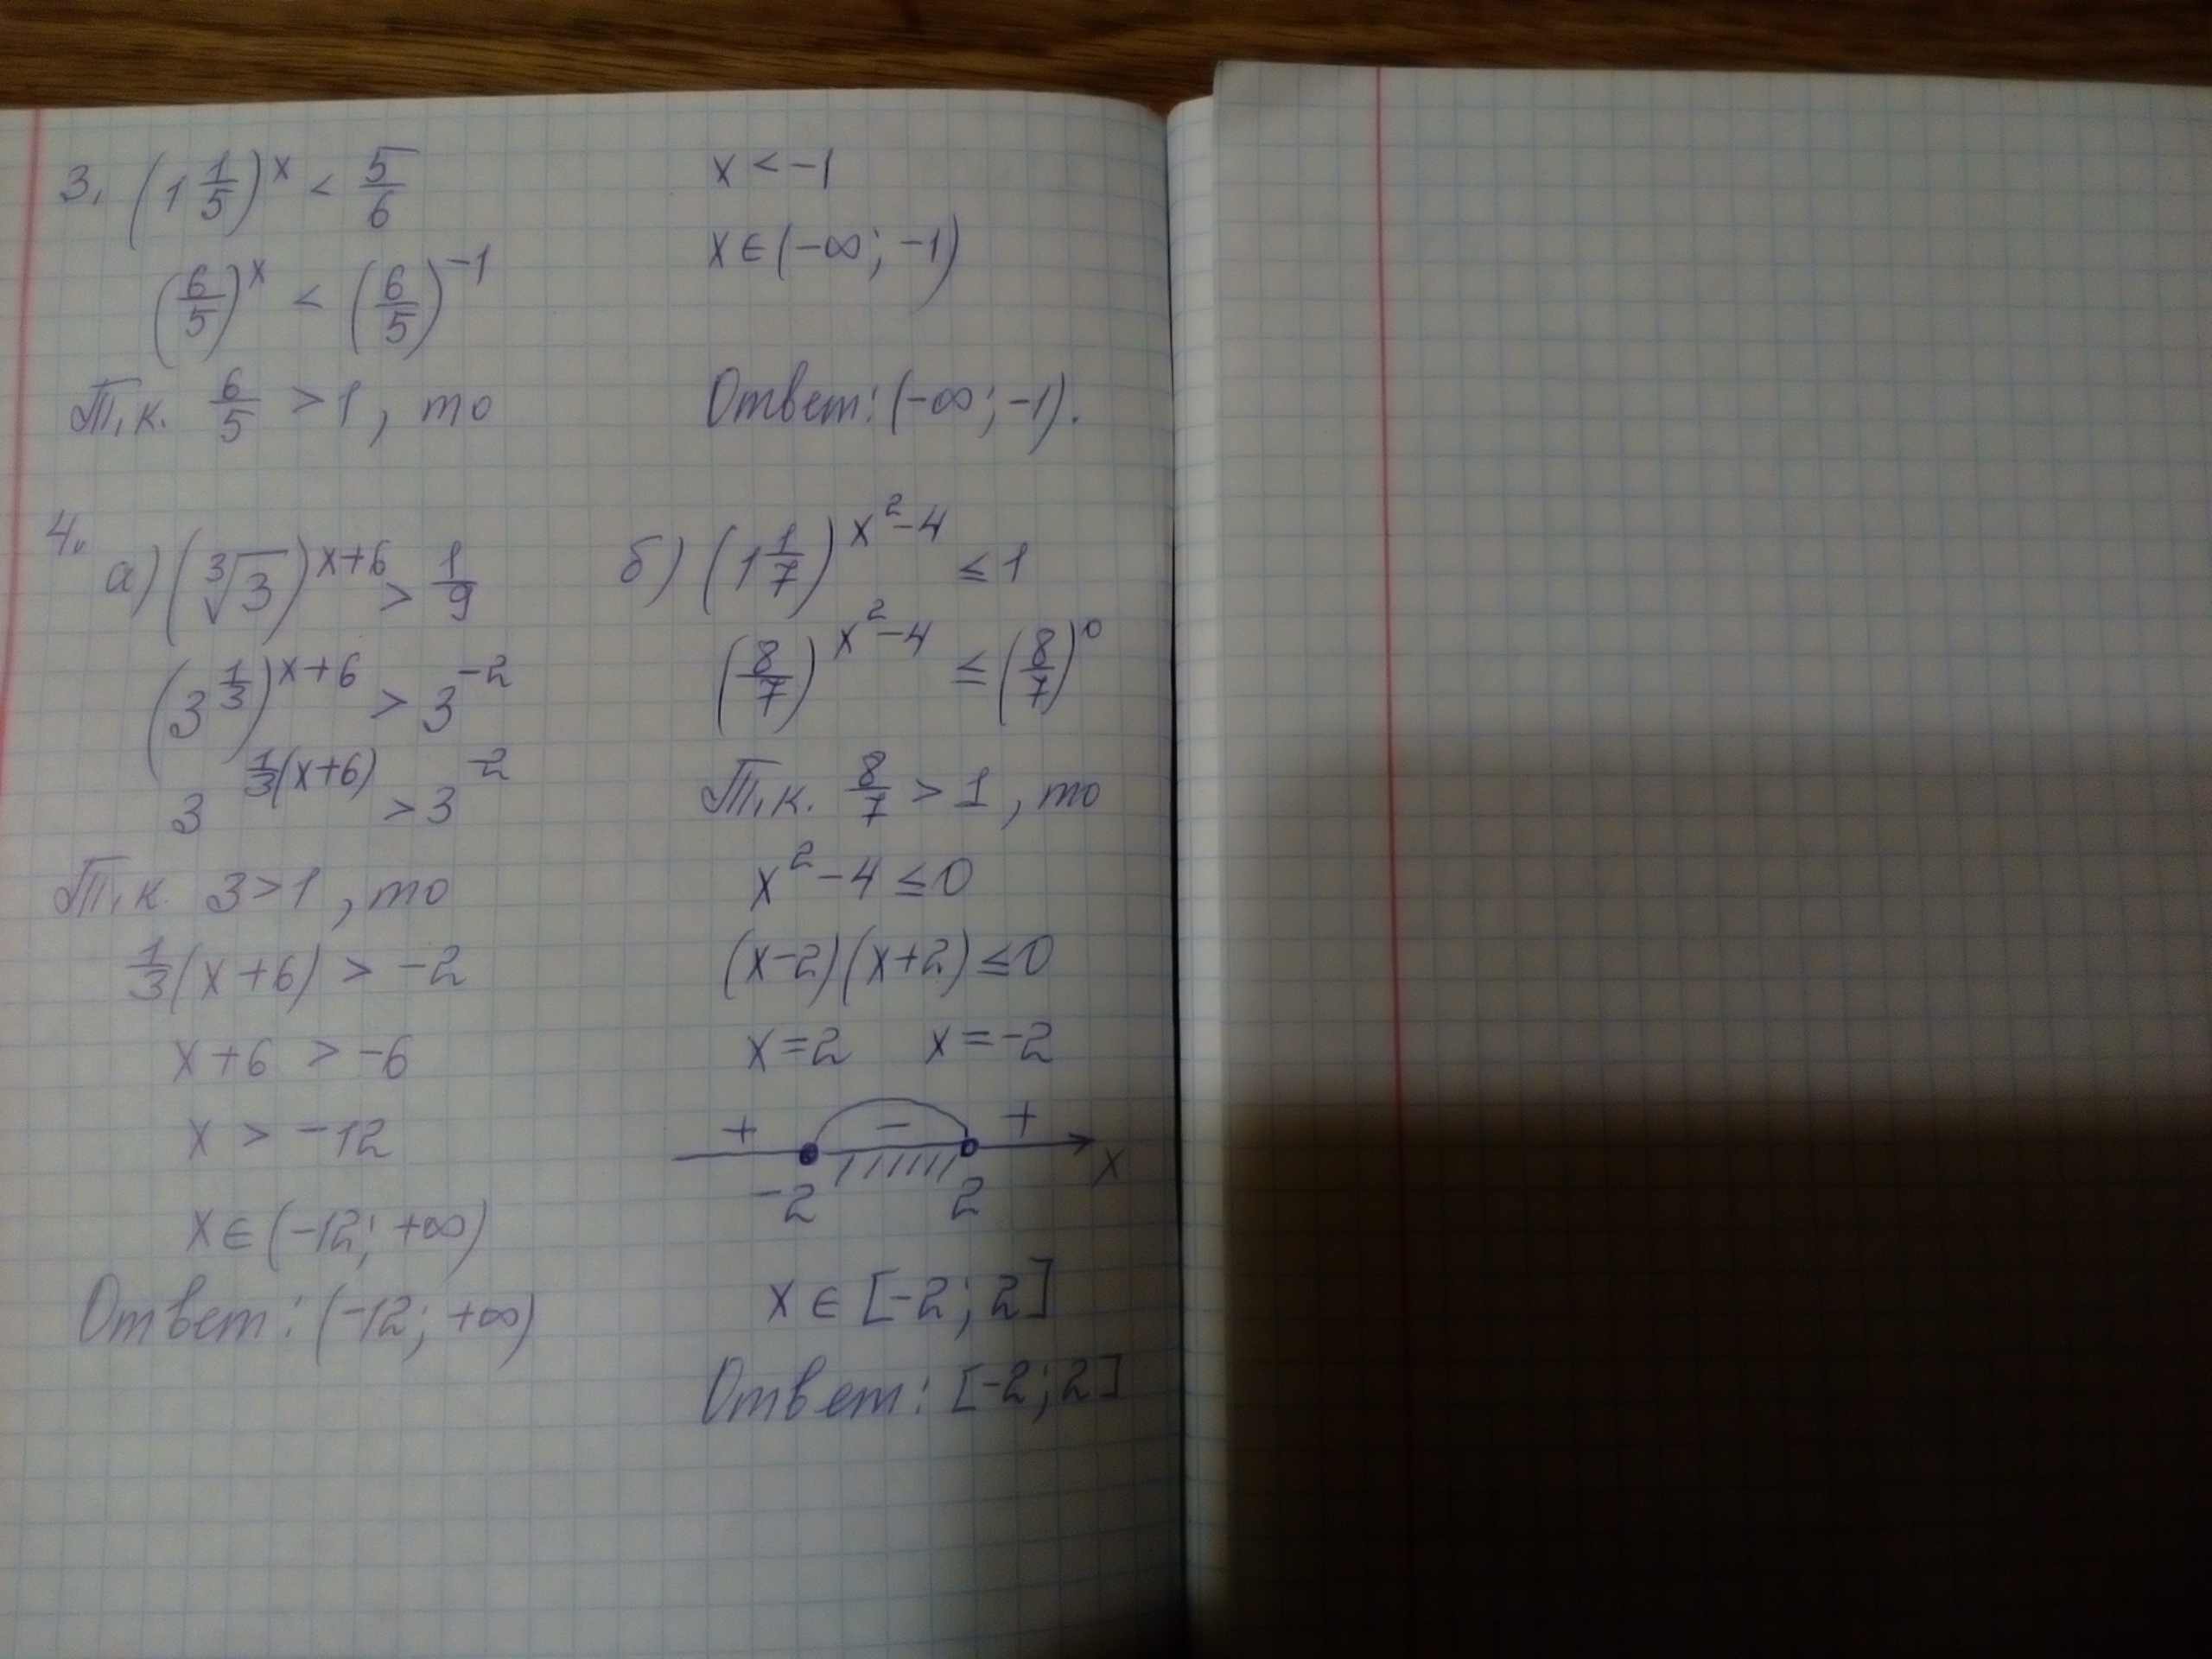 3. (1 1/5)^x < 5/6
(6/5)^x < (6/5)^-1
Т.к. 6/5 > 1, то
x < -1
x ∈ (-∞; -1)
Ответ: (-∞; -1).
4.
а) (∛3)^x+6 > 1/9
(3^1/3)^x+6 > 3^-2
3^1/3(x+6) > 3^-2
Т.к. 3 > 1, то
1/3(x+6) > -2
x+6 > -6
x > -12
x ∈ (-12; +∞)
Ответ: (-12; +∞)
б) (1 1/7)^x²-4 ≤ 1
(8/7)^x²-4 ≤ (8/7)^0
Т.к. 8/7 > 1, то
x²-4 ≤ 0
(x-2)(x+2) ≤ 0
x=2 x=-2
+ - +
-2 2 x
x ∈ [-2; 2]
Ответ: [-2; 2]